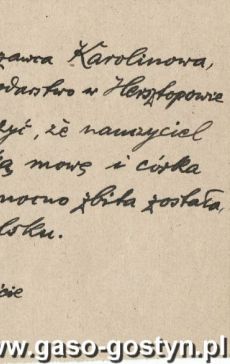 zawca Karolinowa,
odarstwo w Hersztopowie
dyć, że nauczyciel
ią mowę i córka
mocno zbita została,
loku.
cie
www.gaso-gostyn.pl